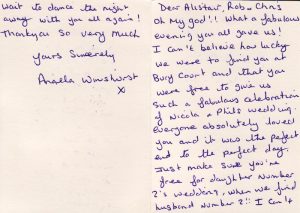 Dear Alistair, Rob & Chris
Oh My god!! What a fabulous
evening you all gave us!
I can't believe how lucky
we were to find you at
Bury Court and that you
were free to give us
such a fabulous celebration
of Nicola & Phil's wedding.
Everyone absolutely loved
you and it was the perfect
end to the perfect day.
Just make sure you're
free for daughter number
2's wedding, when we find
husband number 2!! I can't
wait to dance the night
away with you all again!
Thankyou so very much
Yours Sincerely
Angela
x